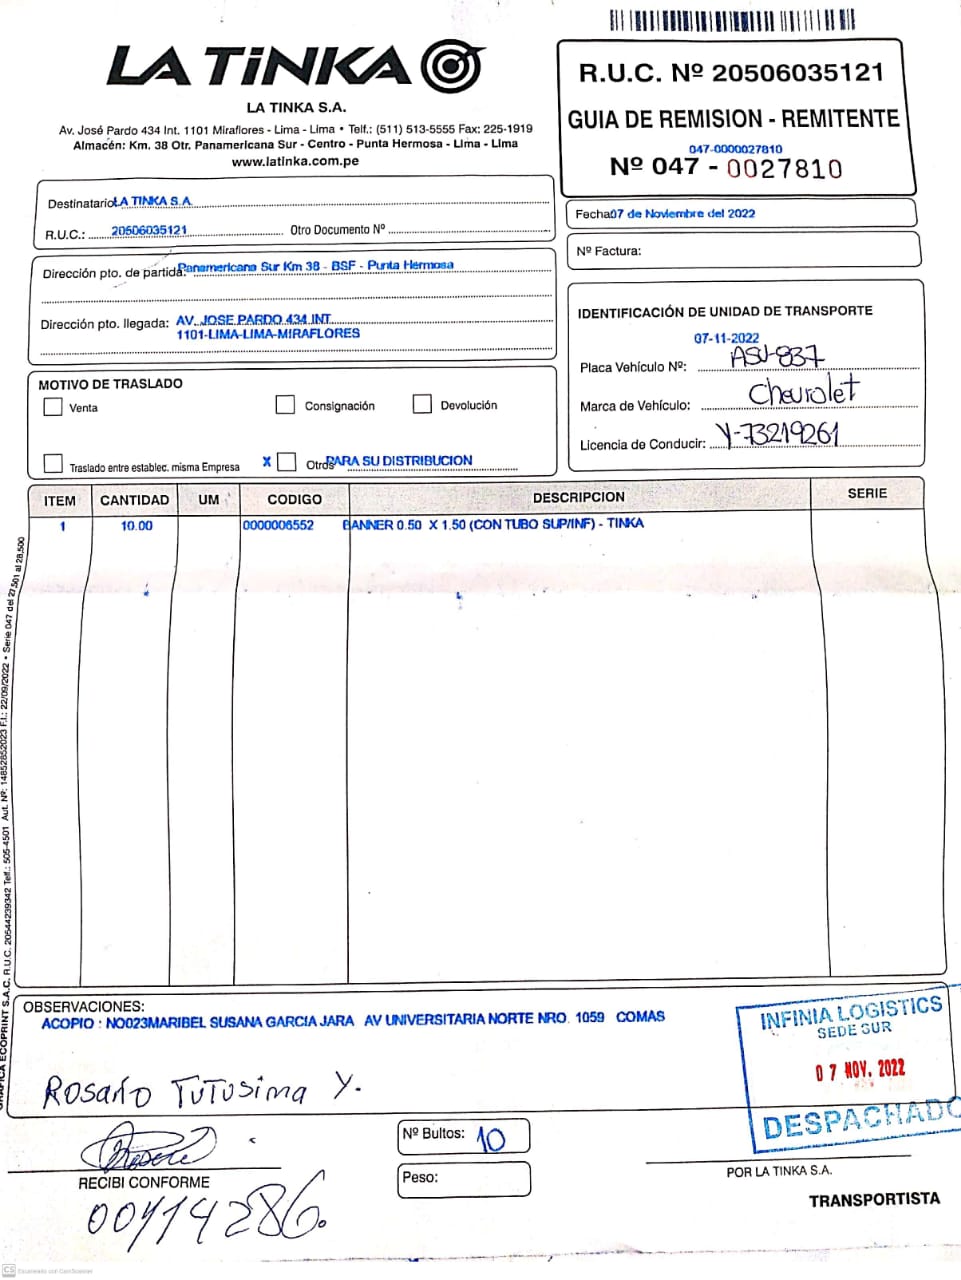 LA TiNKA
LA TINKA S.A.
Av. José Pardo 434 Int. 1101 Miraflores - Lima - Lima • Telf.: (511) 513-5555 Fax: 225-1919
Almacén: Km. 38 Otr. Panamericana Sur - Centro - Punta Hermosa - Lima - Lima
www.latinka.com.pe
R.U.C. Nº 20506035121
GUIA DE REMISION - REMITENTE
047-0000027810
Nº 047 - 0027810
Destinatario LA TINKA S.A.
R.U.C.: 20506035121 Otro Documento Nº
Fecha 07 de Noviembre del 2022
Nº Factura:
Dirección pto. de partida: Panamericana Sur Km 38 - BSF - Punta Hermosa
Dirección pto. llegada: AV. JOSE PARDO 434 INT.
1101-LIMA-LIMA-MIRAFLORES
IDENTIFICACIÓN DE UNIDAD DE TRANSPORTE
07-11-2022
Placa Vehículo Nº: ASU-837
Marca de Vehículo: Chevrolet
Licencia de Conducir: Y-73219261
MOTIVO DE TRASLADO
Venta
Consignación
Devolución
Traslado entre establec. misma Empresa
X Otros PARA SU DISTRIBUCION
ITEM CANTIDAD UM CODIGO DESCRIPCION SERIE
1 10.00 0000006552 BANNER 0.50 X 1.50 (CON TUBO SUP/INF) - TINKA
GRAFICA ECOPRINT S.A.C. R.U.C. 20544239342 Telf.: 505-4501 Aut. Nº: 14852852023 F.I.: 22/09/2022 • Serie 047 del 27,501 al 28,500
OBSERVACIONES:
ACOPIO : NO023MARIBEL SUSANA GARCIA JARA AV UNIVERSITARIA NORTE NRO. 1059 COMAS
INFINIA LOGISTICS
SEDE SUR
07 NOV. 2022
DESPACHADO
Rosario Tutusima Y.
RECIBI CONFORME
00114286.
Nº Bultos: 10
Peso:
POR LA TINKA S.A.
TRANSPORTISTA
CS Escaneado con CamScanner